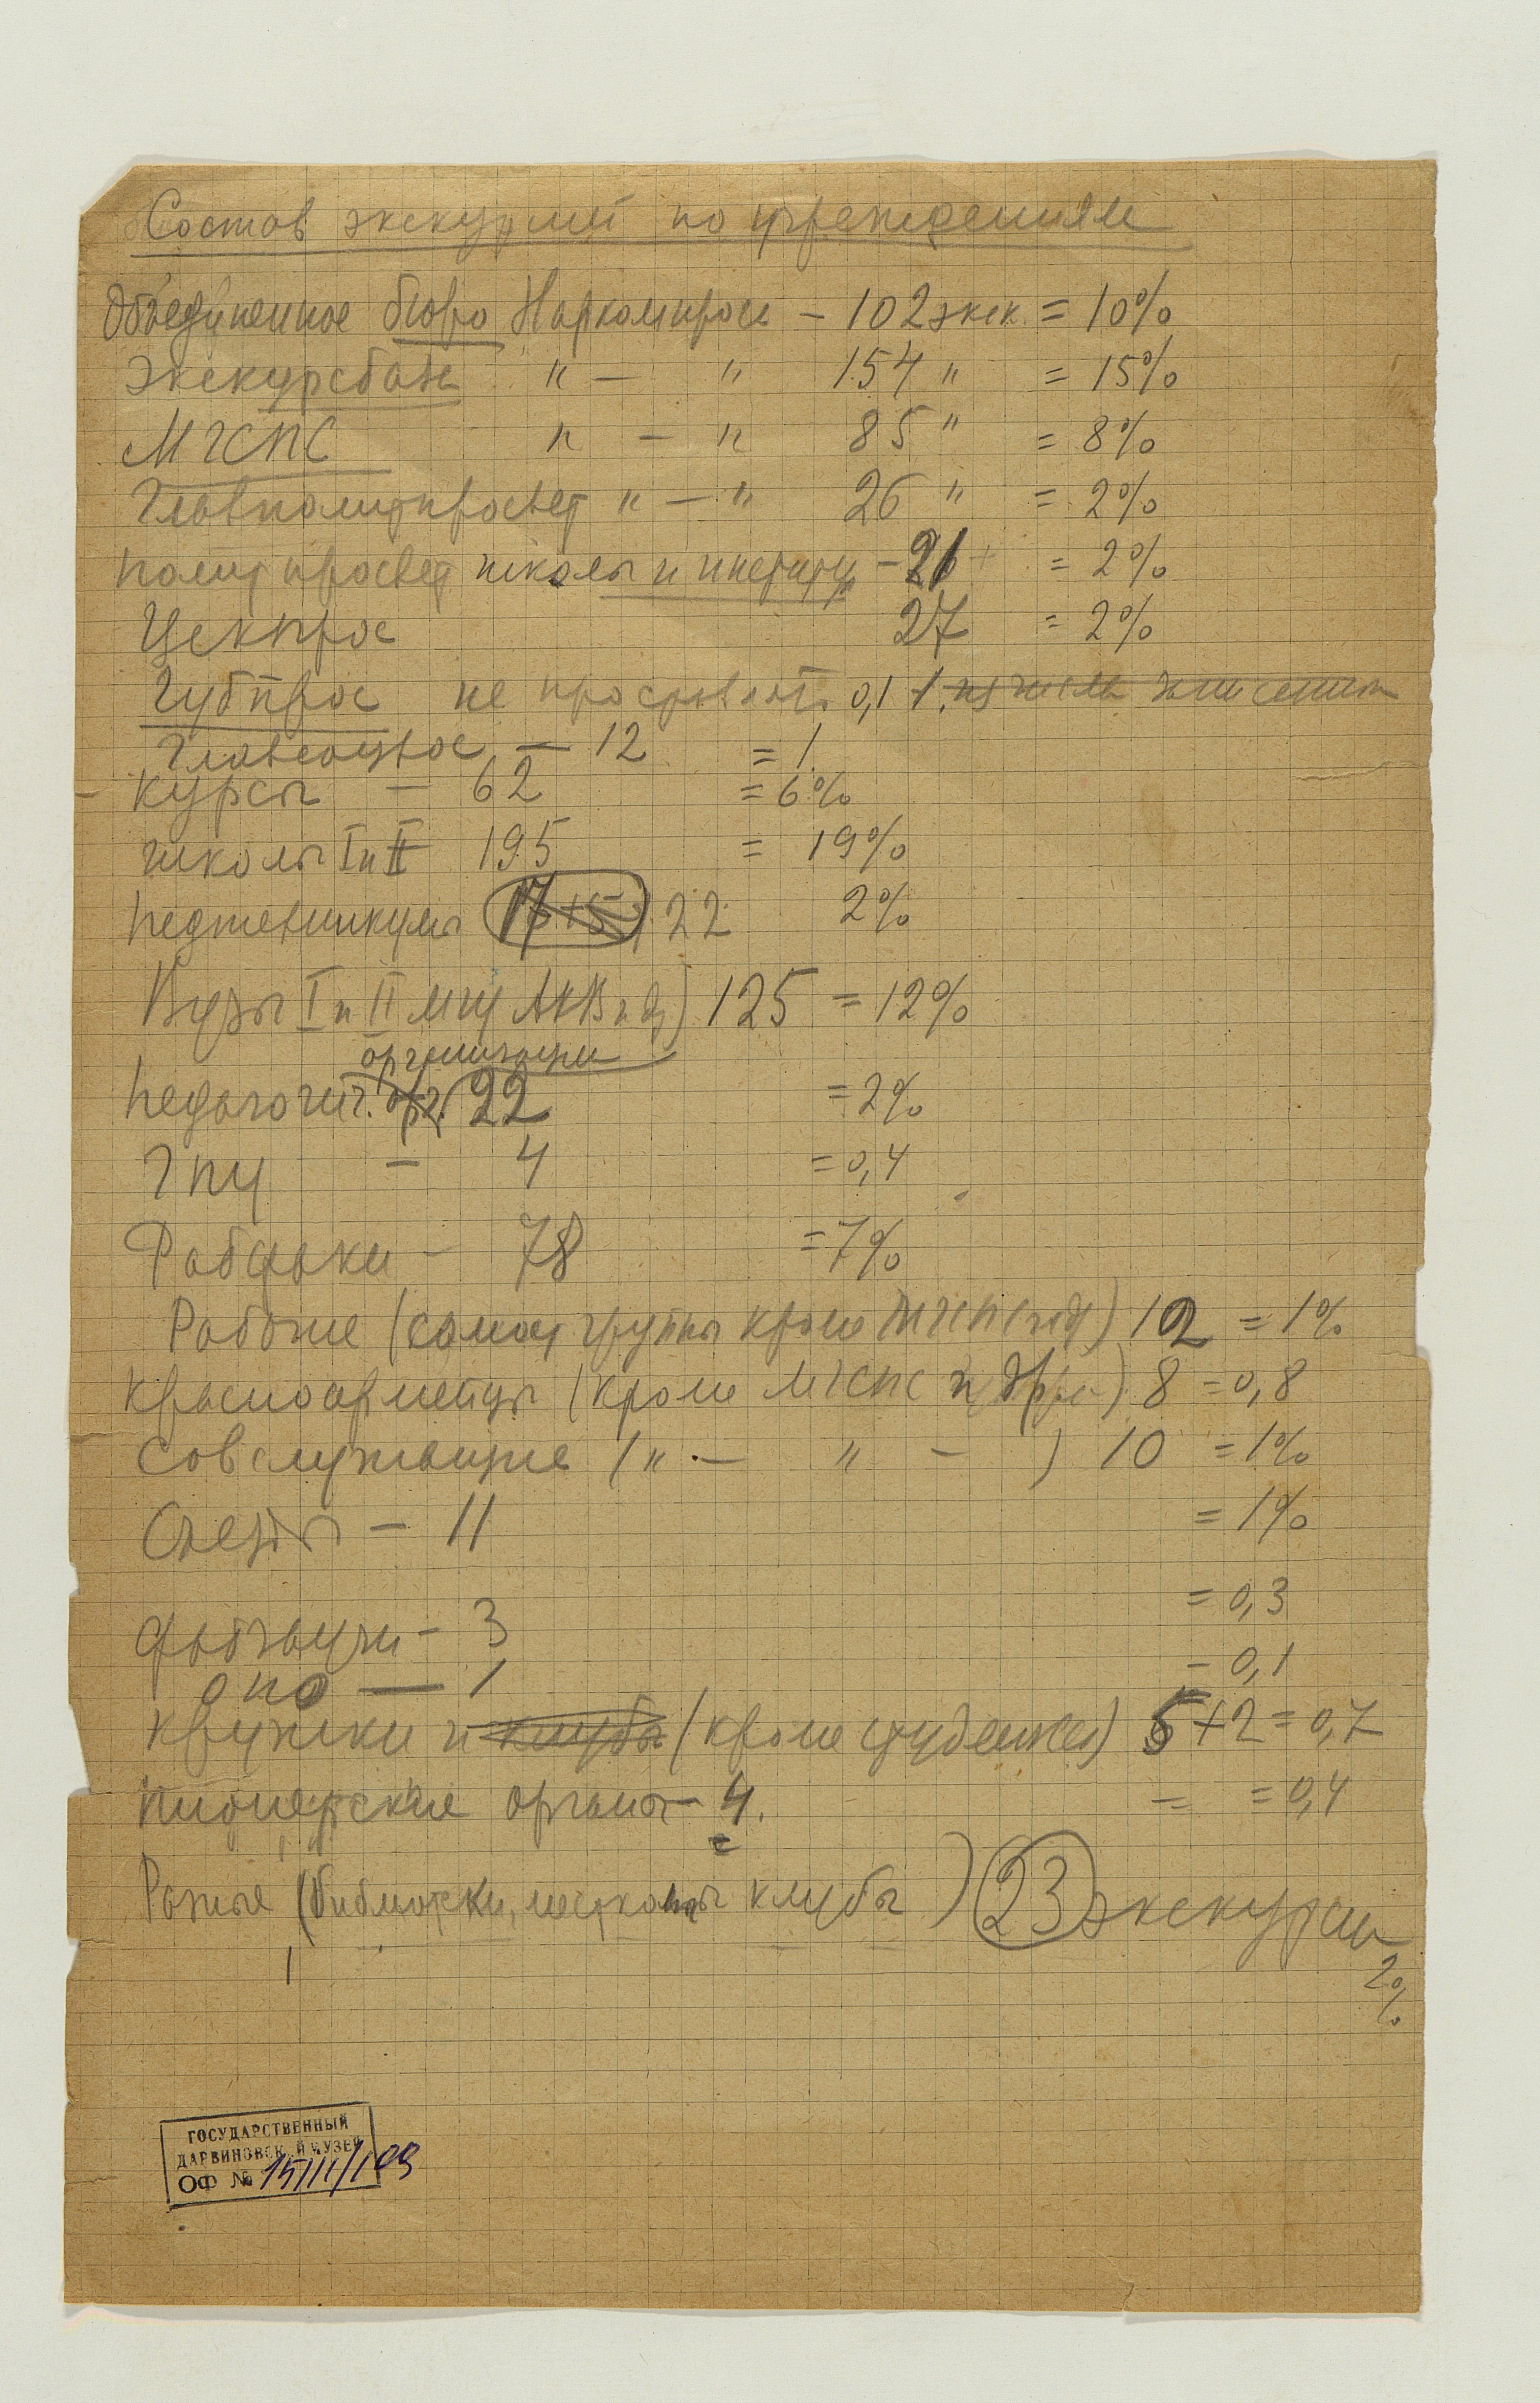 Состав экскурсий по учреждениям
Объединенное бюро Наркомпроса – 102 экск. = 10%
Экскурсбаза " — " 154 " = 15%
МГСПС " — " 85 " = 8%
Главполитпросвет " — " 26 " = 2%
политпросвет школы и институты – 21 = 2%
Цекпрос 27 = 2%
Губпрос не 0,1 из числа
Главсоцвос — 12 = 1
Курсы – 62 = 6%
школы I и II 195 = 19%
педтехникумы 17+5 22 2%
Вузы I и II МГУ АКВ и др) 125 = 12%
организации
педагогич. орг. 22 = 2%
ГПУ – 4 = 0,4
Рабфаки – 78 = 7%
Рабочие (самост группы кроме МГСПС) 12 = 1%
красноармейцы (кроме МГСПС и др.) 8 = 0,8
совслужащие (" — " — ) 10 = 1%
Съезды – 11 = 1%
= 0,3
фабзавучи – 3
– 0,1
оно — 1
кружки и клубы (кроме студенческ) 5+2 = 0,7
пионерские органы – 4. = 0,4
Разные (библиотеки, месткомы клубы) 23 экскурсии
2%
ГОСУДАРСТВЕННЫЙ
ДАРВИНОВСКИЙ МУЗЕЙ
ОФ №